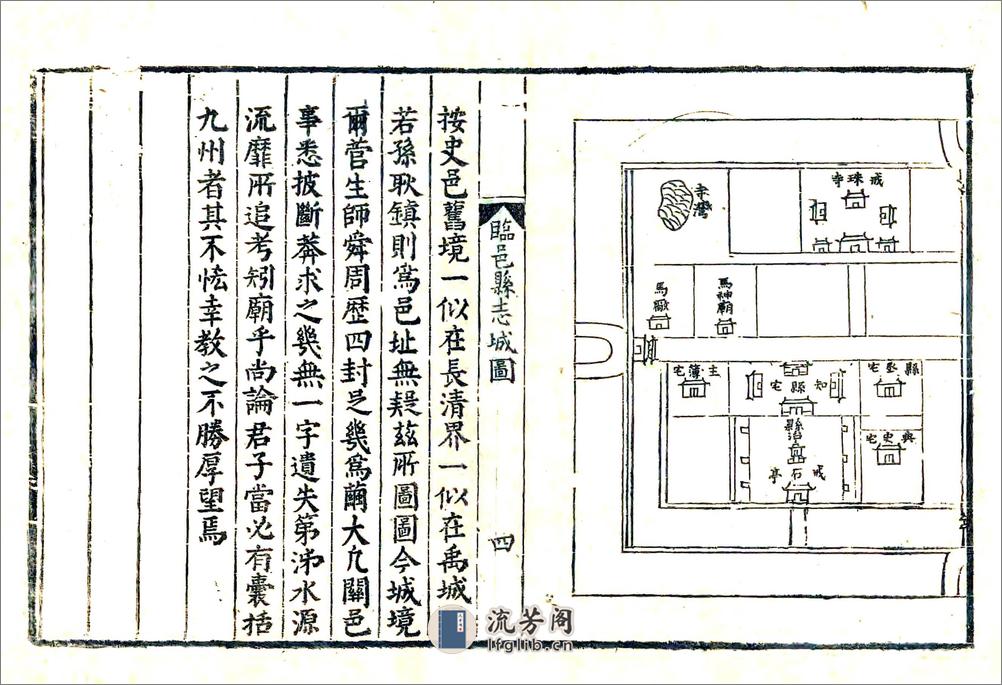 戒珠寺
寺灣
馬神廟
馬廠
縣丞宅
知縣宅
主簿宅
典史宅
縣治
戒石亭
臨邑縣志城圖
四
按史邑舊境一似在長清界一似在禹城
若孫耿鎮則爲邑址無疑茲所圖圖今城境
爾菅生師舜周歴四封足幾爲繭大凢關邑
事悉披斷莽求之幾無一字遺失第沸水源
流靡所追考矧廟乎尚論君子當必有囊括
九州者其不恡幸教之不勝厚望焉
流芳阁
lfglib.cn